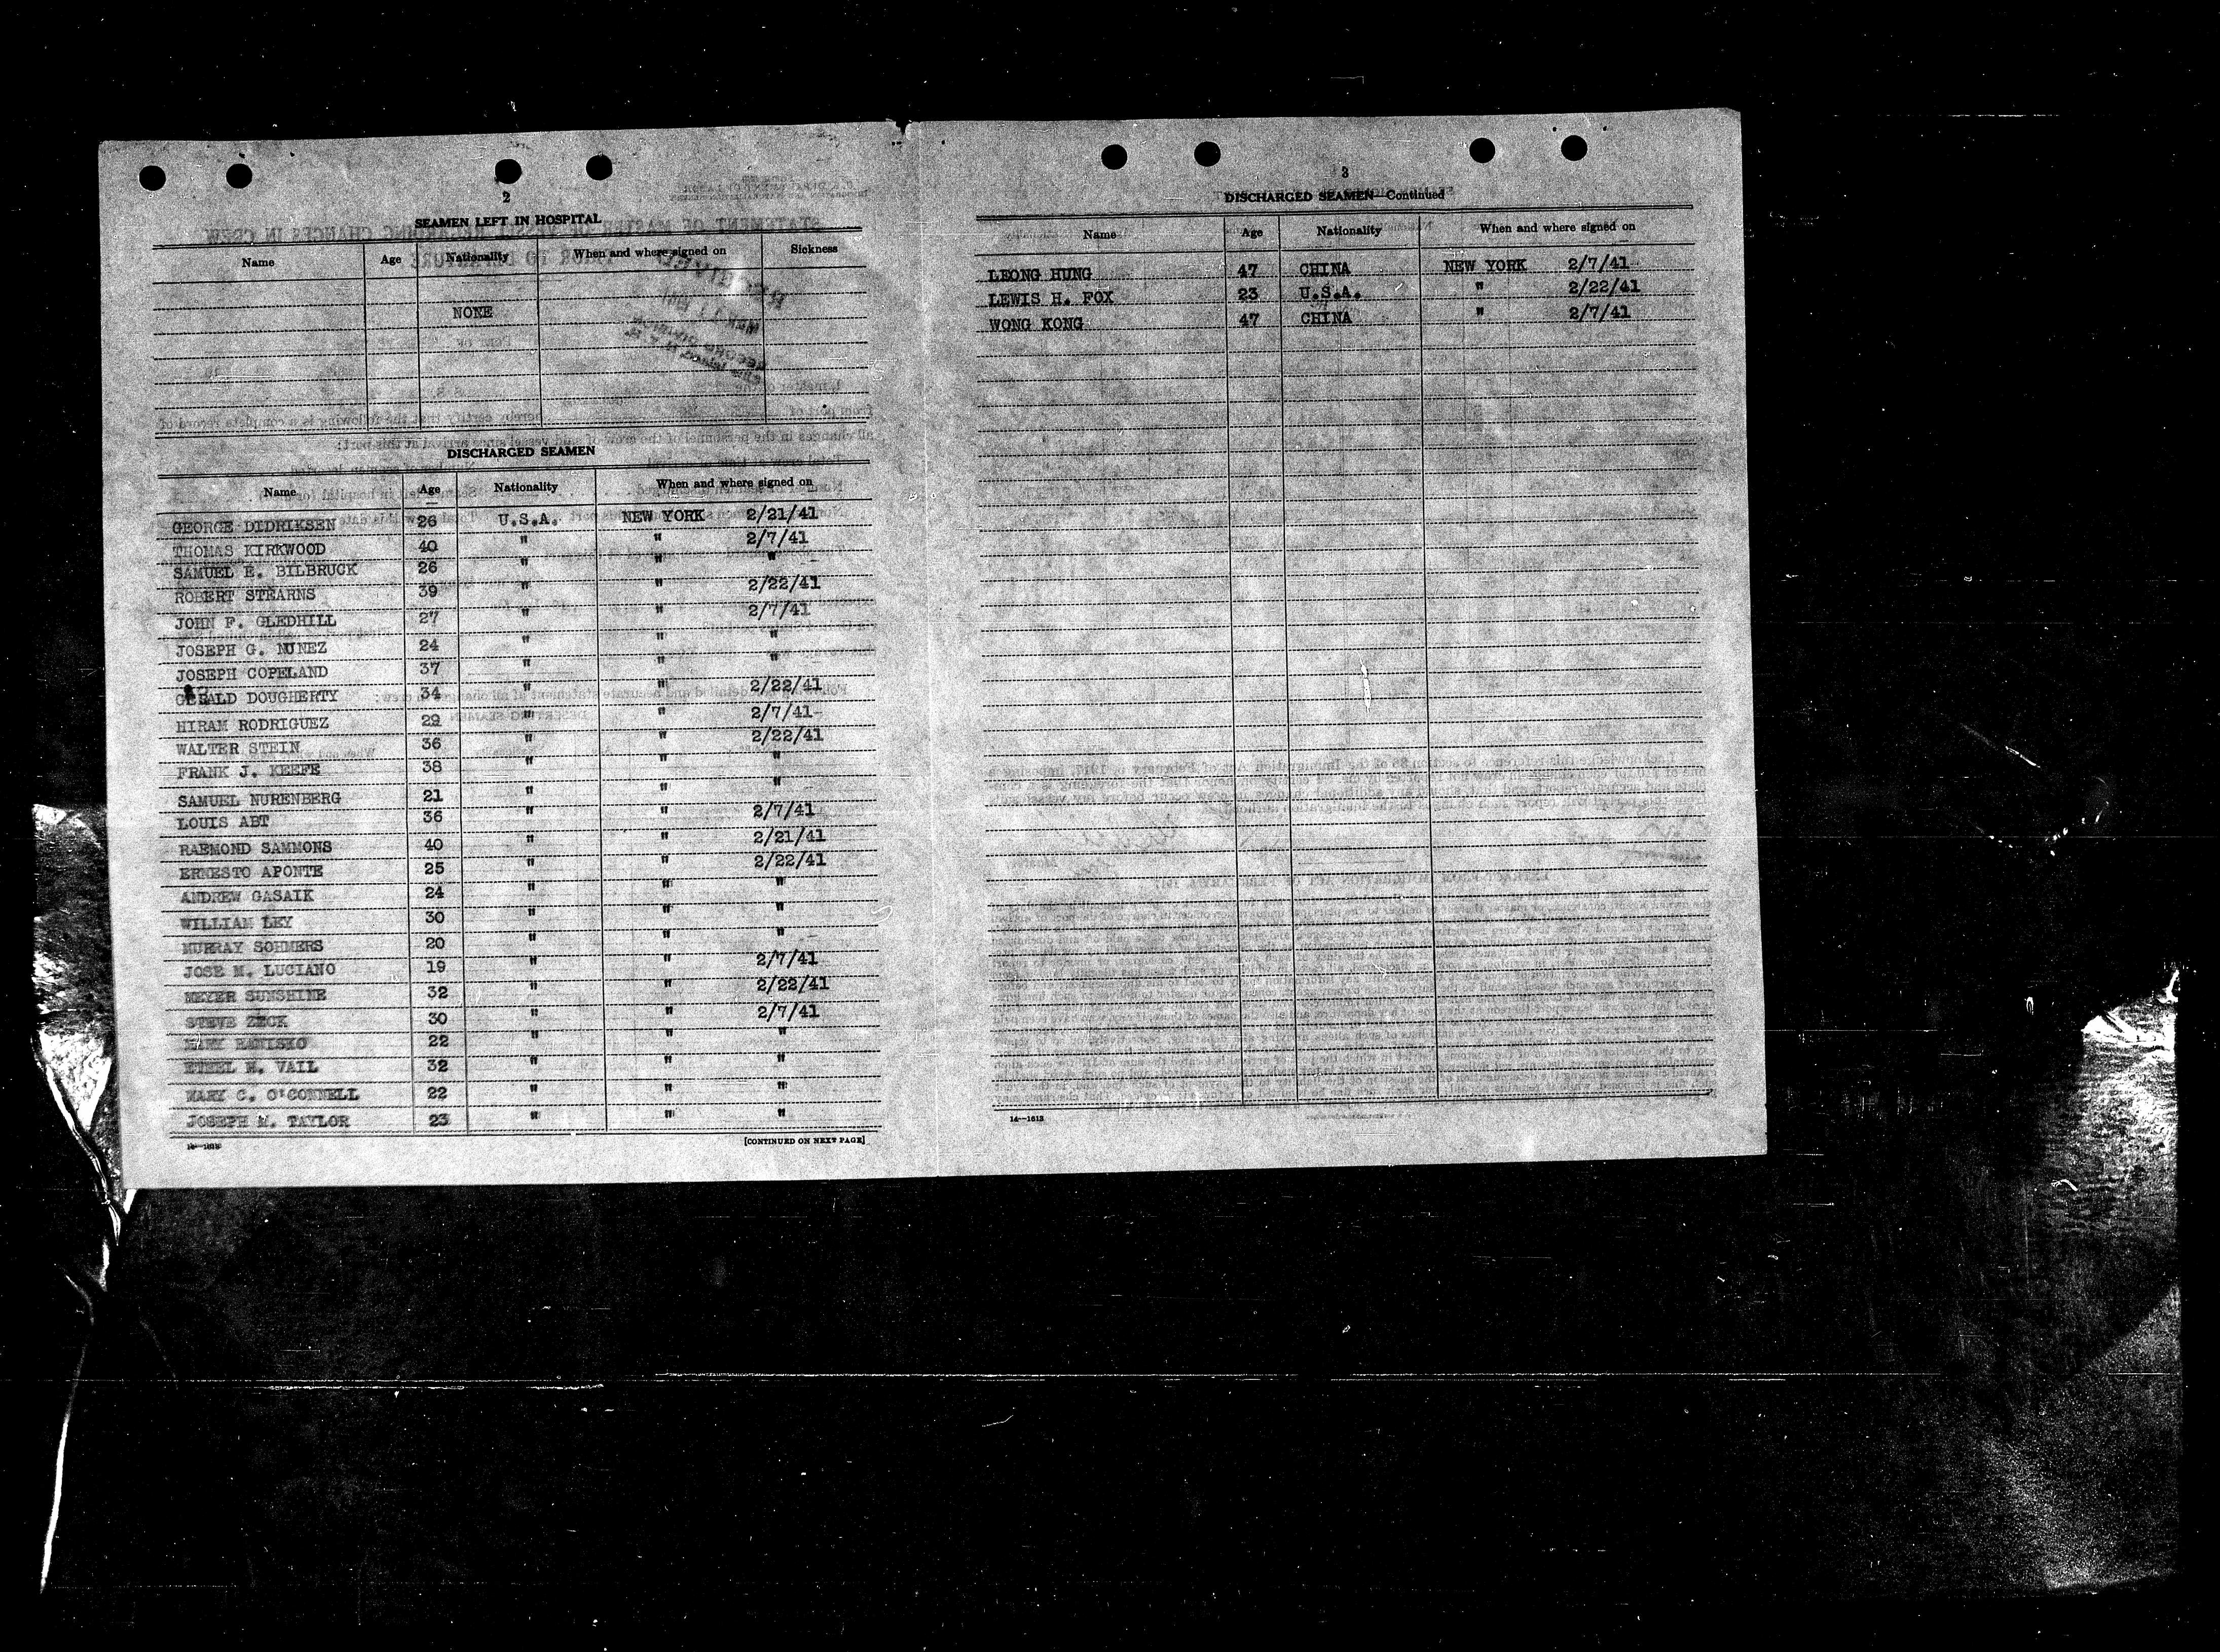 2
SEAMEN LEFT IN HOSPITAL
Name Age Nationality When and where signed on Sickness
NONE
DISCHARGED SEAMEN
Name Age Nationality When and where signed on
GEORGE DIDRIKSEN 26 U.S.A. NEW YORK 2/21/41
THOMAS KIRKWOOD 40 " " 2/7/41
SAMUEL E. BILBRUCK 26 " " "
ROBERT STEARNS 39 " " 2/22/41
JOHN F. GLEDHILL 27 " " 2/7/41
JOSEPH G. NUNEZ 24 " " "
JOSEPH COPELAND 37 " " "
GERALD DOUGHERTY 34 " " 2/22/41
HIRAM RODRIGUEZ 29 " " 2/7/41
WALTER STEIN 36 " " 2/22/41
FRANK J. KEEFE 38 " " "
SAMUEL NURENBERG 21 " " "
LOUIS ABT 36 " " 2/7/41
RAEMOND SAMMONS 40 " " 2/21/41
ERNESTO APONTE 25 " " 2/22/41
ANDREW GASAIK 24 " " "
WILLIAM LEY 30 " " "
MURRAY SOHMERS 20 " " "
JOSE M. LUCIANO 19 " " 2/7/41
MEYER SUNSHINE 32 " " 2/22/41
STEVE ZECK 30 " " 2/7/41
22 " " "
ETHEL M. VAIL 32 " " "
MARY C. O'CONNELL 22 " " "
JOSEPH W. TAYLOR 23 " " "
[CONTINUED ON NEXT PAGE]
3
DISCHARGED SEAMEN—Continued
Name Age Nationality When and where signed on
LEONG HUNG 47 CHINA NEW YORK 2/7/41
LEWIS H. FOX 23 U.S.A. " 2/22/41
WONG KONG 47 CHINA " 2/7/41
14—1613